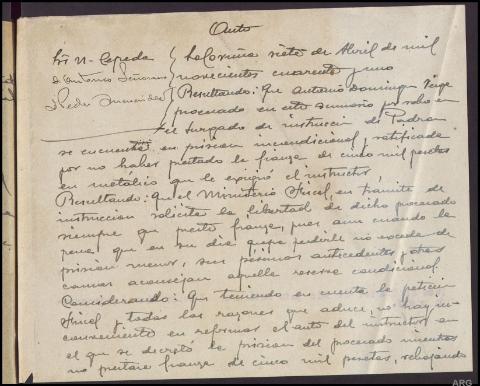 Auto
Srs N. Cepeda
D. Antonio Señorans
D. Pedro
La Coruña siete de Abril de mil
novecientos cuarenta y uno
Resultando: Que Antonio Dominguez
procesado en este sumario por robo en
el Juzgado de instrucción de Padron
se encuentra en prision incondicional, ratificada
por no haber prestado la fianza de cinco mil pesetas
en metálico que le exigió el instructor,
Resultando: Que el Ministerio Fiscal, en trámite de
instruccion solicita la libertad de dicho procesado
siempre que preste fianza, pues aun cuando la
pena que en su dia pedirle no excede de
prision menor, sus pésimos antecedentes y otras
causas aconsejan aquella reserva condicional
Considerando: Que teniendo en cuenta la peticion
Fiscal y todas las razones que aduce, no hay in-
conveniente en reformar el auto del instructor en
el que se decretó la prision del procesado mientras
no prestare fianza de cinco mil pesetas, rebajando
ARG